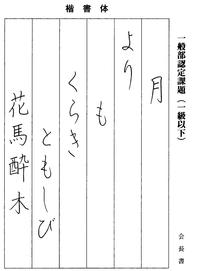 楷書体
一般部認定課題(一級以下)
月
より
も
くらき
ともしび
花馬酔木
会長書